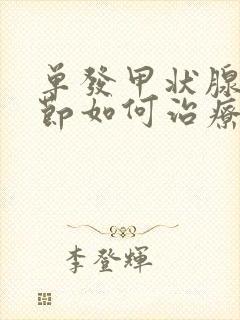 单發甲状腺
節如何治療
李登輝